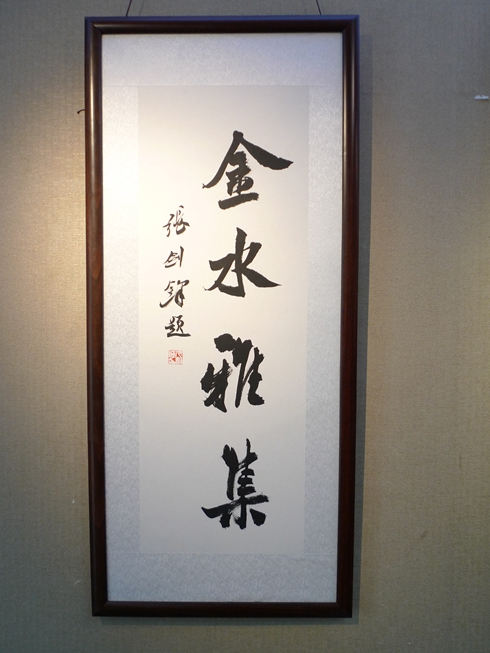 金水雅集
張剑鋒题